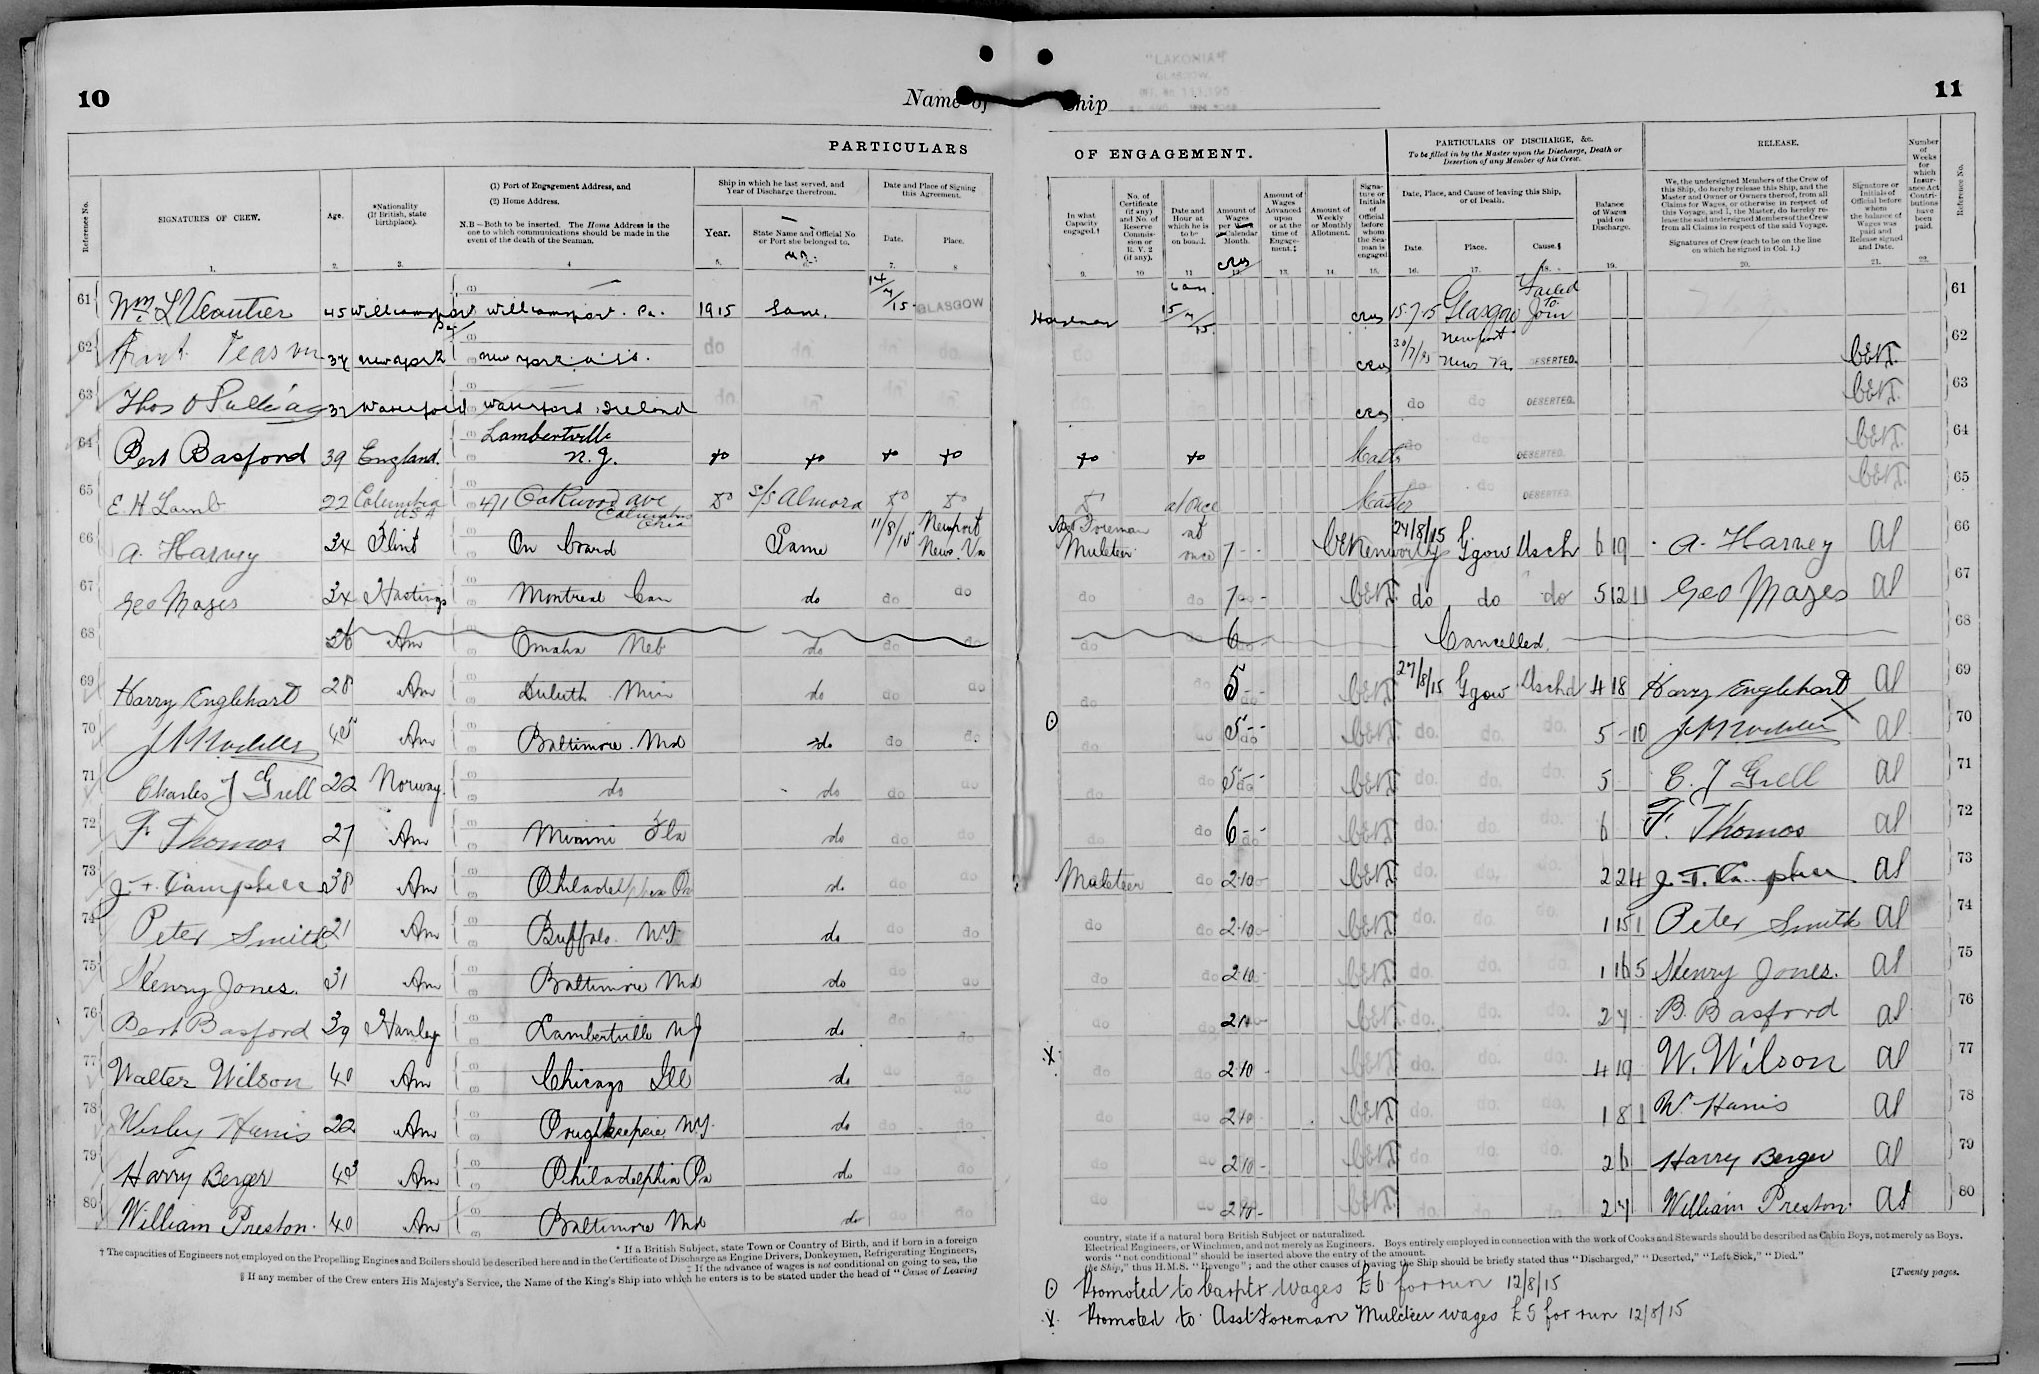 10
Name of
PARTICULARS
Reference No.
SIGNATURES OF CREW.
Age.
*Nationality (If British, state birthplace).
(1) Port of Engagement Address, and
(2) Home Address.
N.B.—Both to be inserted. The Home Address is the one to which communications should be made in the event of the death of the Seaman.
Ship in which he last served, and Year of Discharge therefrom.
Year.
State Name and Official No. or Port she belonged to.
Date and Place of Signing this Agreement.
Date.
Place.
1. 2. 3. 4 5. 7. 8
61 45 Williamsport Pa. Williamsport. Pa. 1915 Same. 14/7/15 GLASGOW
62 34 New York New York U.S. do do do do
63 Thos O Sullivan 32 Waterford Waterford, Ireland do do do do
64 Bert Basford 39 England. Lambertville N.J. do do do do
65 E. H. Lamb 22 Columbia USA 471 Oakwood ave Columbus Ohio do S/S Almora do do
66 A. Harvey 34 Flint On board Same 11/8/15 Newport News. Va
67 Geo Mazes 34 Hastings Montreal Can do do do
68 26 Am Omaha Neb do do do
69 Harry Englehart 28 Am Duluth Min do do do
70 45 Am Baltimore. Md do do do
71 Charles J Grell 22 Norway. do do do do
72 F. Thomas 27 Am Miami Fla do do do
73 J. T. Campbell 38 Am Philadelphia Pa do do do
74 Peter Smith 21 Am Buffalo. NY do do do
75 Henry Jones. 31 Am Baltimore Md do do do
76 Bert Basford 39 Hanley Lambertville NJ do do do
77 Walter Wilson 40 Am Chicago Ill do do do
78 Wesley Harris 22 Am Poughkeepsie NY. do do do
79 Harry Berger 43 Am Philadelphia Pa do do do
80 William Preston. 40 Am Baltimore Md do do do
* If a British Subject, state Town or Country of Birth, and if born in a foreign
† The capacities of Engineers not employed on the Propelling Engines and Boilers should be described here and in the Certificate of Discharge as Engine Drivers, Donkeymen, Refrigerating Engineers,
‡ If the advance of wages is not conditional on going to sea, the
§ If any member of the Crew enters His Majesty's Service, the Name of the King's Ship into which he enters is to be stated under the head of "Cause of Leaving
"LAKONIA"
GLASGOW.
Off. No. 111,195
Ship
11
OF ENGAGEMENT.
In what Capacity engaged.†
No. of Certificate (if any) and No. of Reserve Commission or R. V. 2 (if any).
Date and Hour at which he is to be on board.
Amount of Wages per Calendar Month.
Amount of Wages Advanced upon or at the time of Engagement.‡
Amount of Weekly or Monthly Allotment.
Signature or Initials of Official before whom the Seaman is engaged
PARTICULARS OF DISCHARGE, &c.
To be filled in by the Master upon the Discharge, Death or Desertion of any Member of his Crew.
Date, Place, and Cause of leaving this Ship, or of Death.
Date.
Place.
Cause.§
Balance of Wages paid on Discharge.
RELEASE.
We, the undersigned Members of the Crew of this Ship, do hereby release this Ship, and the Master and Owner or Owners thereof, from all Claims for Wages, or otherwise in respect of this Voyage, and I, the Master, do hereby release the said undersigned Members of the Crew from all Claims in respect of the said Voyage.
Signatures of Crew (each to be on the line on which he signed in Col. 1.)
Signature or Initials of Official before whom the balance of Wages was paid and Release signed and Date.
Number of Weeks for which Insurance Act Contributions have been paid.
Reference No.
9. 10 11 12 13. 14. 15. 16. 17. 18. 19. 20. 21. 22.
Horseman 6 am. 15/7/15 15.7.15 Glasgow Failed to Join 61
do 30/7/15 Newport News Va. DESERTED. 62
do do DESERTED. 63
do do Master do do DESERTED. 64
do at once Master do do DESERTED. 65
Foreman Muleteer at once 7 - - 27/8/15 Ggow Disch 6 19 A. Harvey 66
do do 7 - - do do do 5 12 11 Geo Mazes 67
do do 6 Cancelled. 68
do do 5 - - 27/8/15 Ggow Dischd 4 18 Harry Englehart 69
do do 5 - - do. do. do. 5 - 10 70
do do 5 - - do. do. do. 5 C. J Grell 71
do do 6 - - do. do. do. 6 F. Thomas 72
Muleteer do 2.10 do. do. do. 2 2 4 J. T. Campbell 73
do do 2.10 do. do. do. 1 15 1 Peter Smith 74
do do 2.10 - do. do. do. 1 16 5 Henry Jones. 75
do do 2.10 - do. do. do. 2 7 B. Basford 76
do do 2.10 - do. do. do. 4 19 W. Wilson 77
do do 2.10 - do. do. do. 1 8 1 W. Harris 78
do do 2.10 - do do. do. 2 6 Harry Berger 79
do do 2.10 - do. do. do. 2 7 William Preston. 80
country, state if a natural born British Subject or naturalized.
Electrical Engineers, or Winchmen, and not merely as Engineers. Boys entirely employed in connection with the work of Cooks and Stewards should be described as Cabin Boys, not merely as Boys.
words "not conditional" should be inserted above the entry of the amount.
the Ship," thus H.M.S. "Revenge"; and the other causes of leaving the Ship should be briefly stated thus "Discharged," "Deserted," "Left Sick," "Died."
[Twenty pages.
⊙ Promoted to Carptr wages £6 for run 12/8/15
X Promoted to Asst Foreman Muleteer wages £5 for run 12/8/15